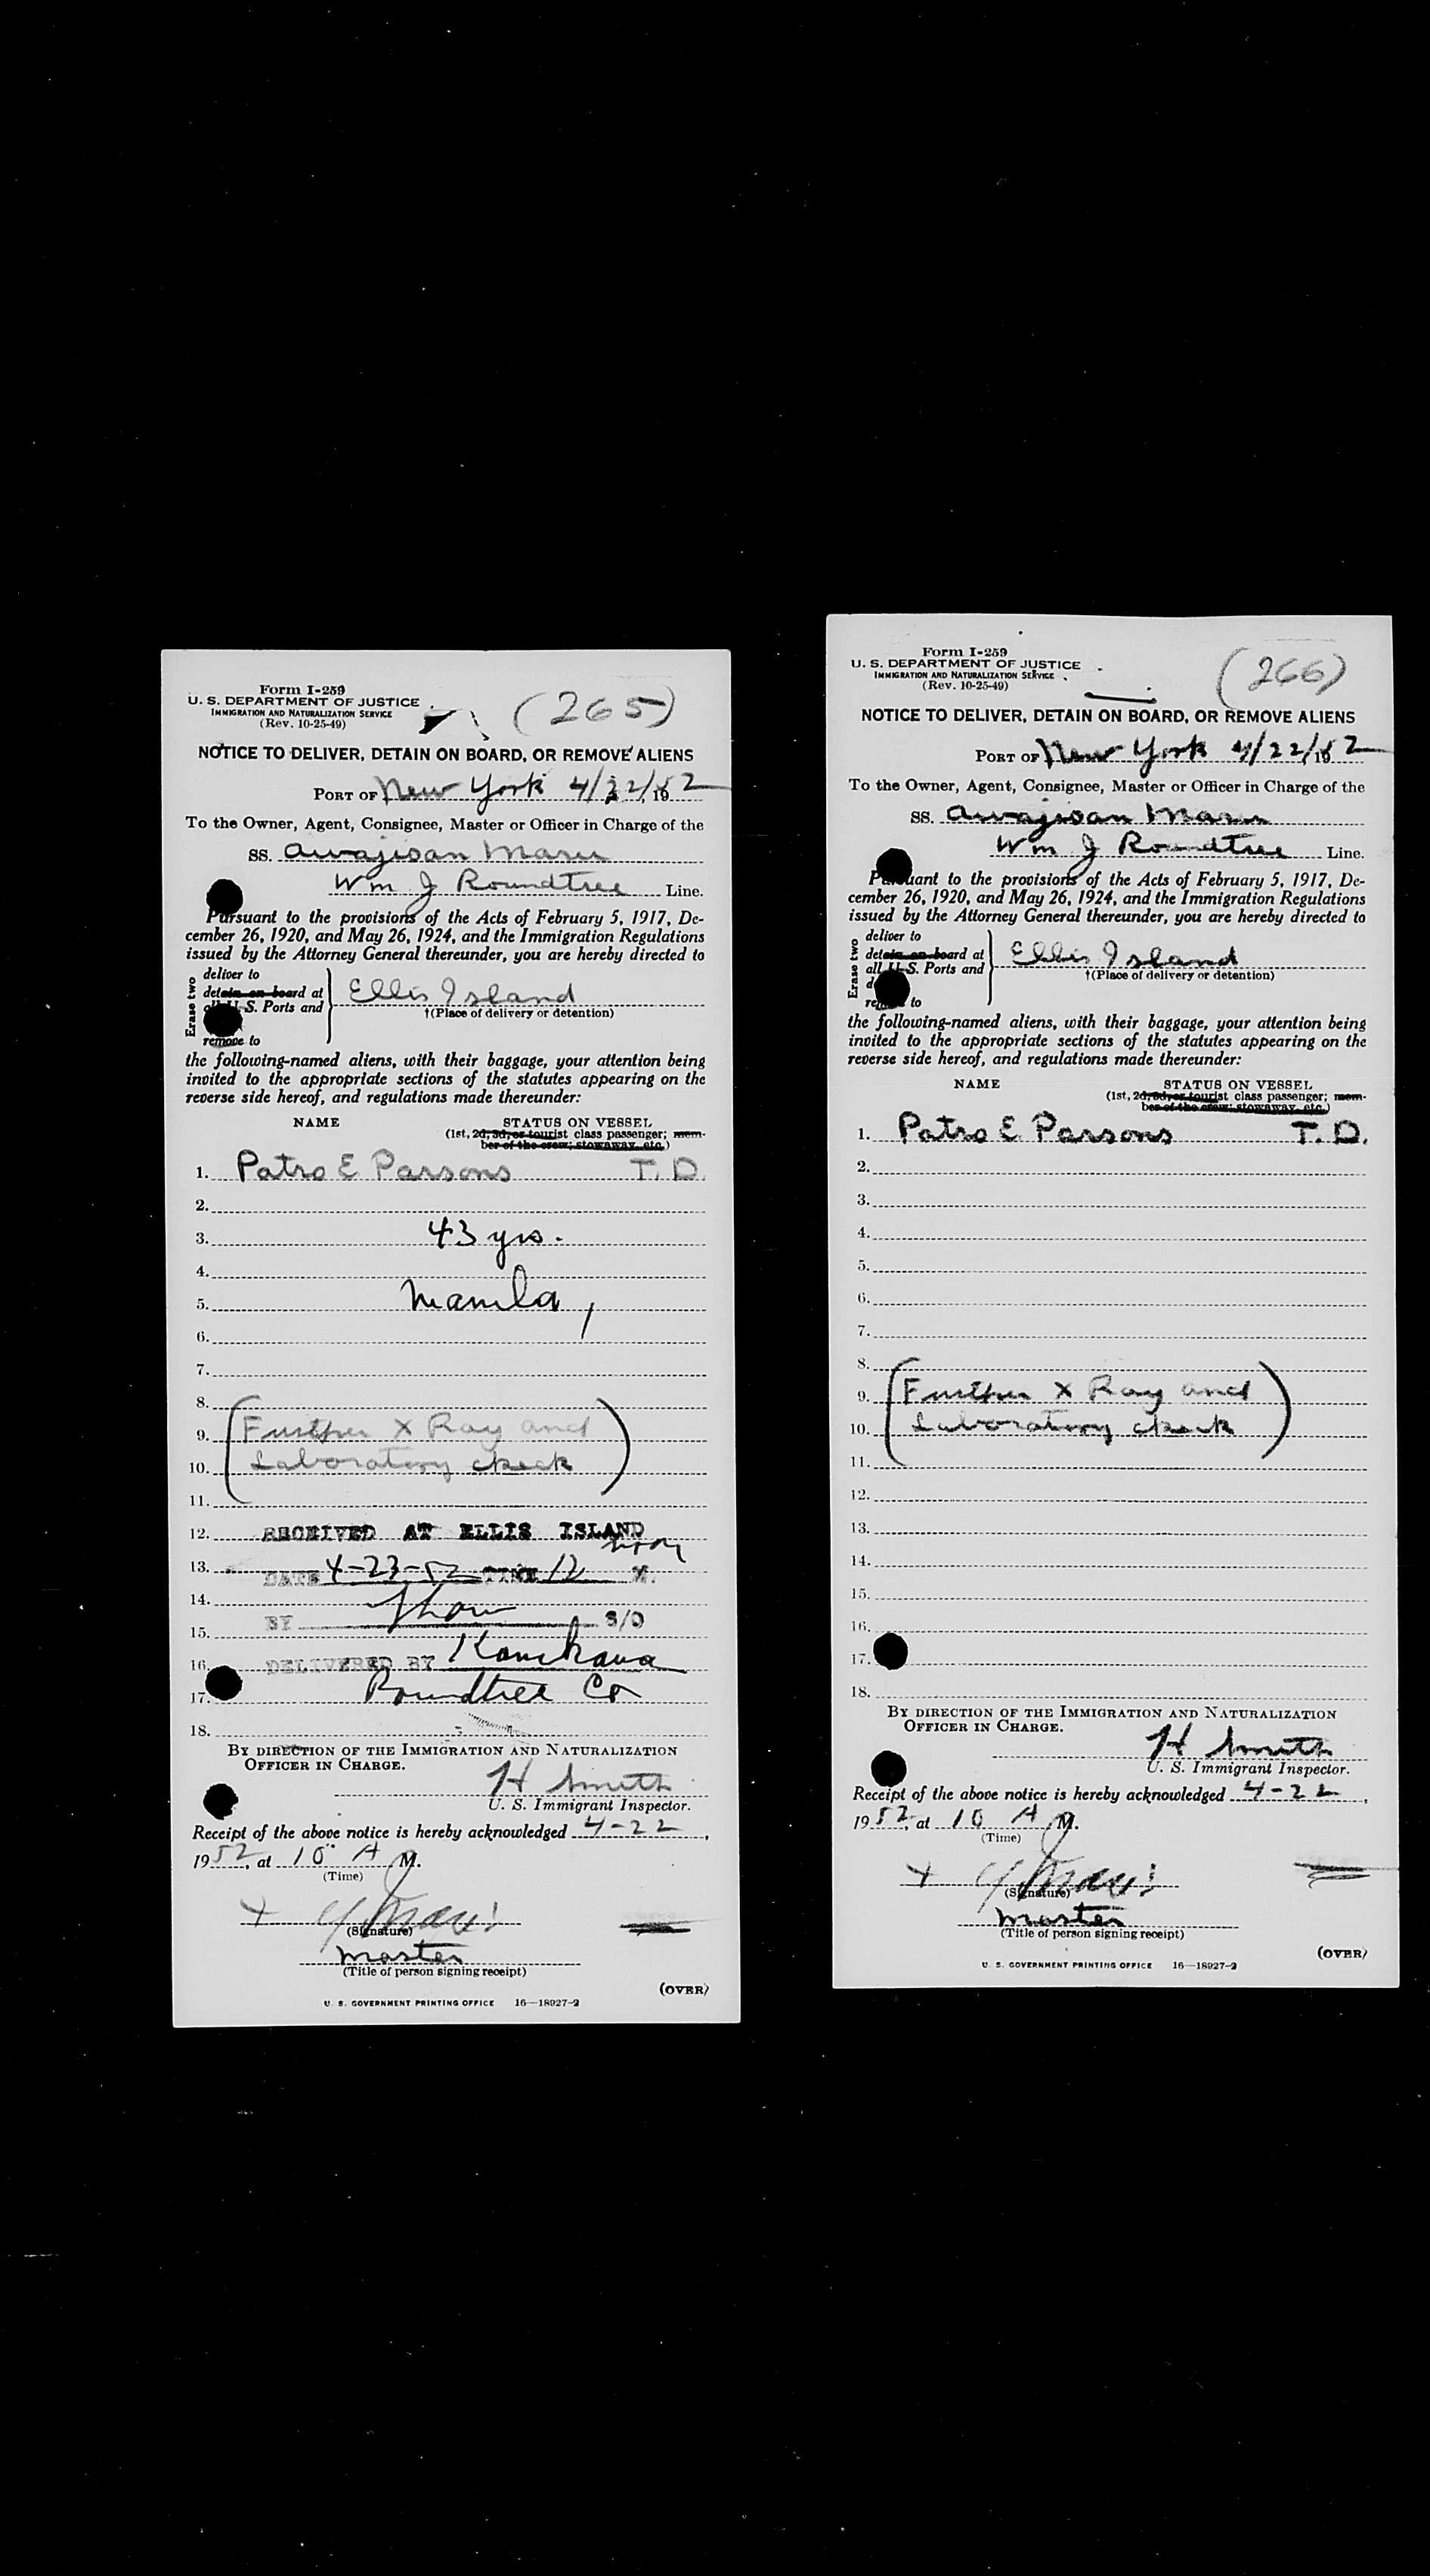 Form I-259
U. S. DEPARTMENT OF JUSTICE
IMMIGRATION AND NATURALIZATION SERVICE
(Rev. 10-25-49)
(265)
NOTICE TO DELIVER, DETAIN ON BOARD, OR REMOVE ALIENS
PORT OF New York 4/22/, 1952
To the Owner, Agent, Consignee, Master or Officer in Charge of the
SS. Awajisan Maru
Wm J Roundtree Line.
Pursuant to the provisions of the Acts of February 5, 1917, De-
cember 26, 1920, and May 26, 1924, and the Immigration Regulations
issued by the Attorney General thereunder, you are hereby directed to
Erase two
deliver to
detain on board at
all U.S. Ports and
remove to
Ellis Island
†(Place of delivery or detention)
the following-named aliens, with their baggage, your attention being
invited to the appropriate sections of the statutes appearing on the
reverse side hereof, and regulations made thereunder:
NAME STATUS ON VESSEL
(1st, 2d, 3d, or tourist class passenger; mem-
ber of the crew; stowaway, etc.)
1. Patro E Parsons T. D.
2.
3. 43 yrs.
4.
5. Manila,
6.
7.
8.
9. (Further X Ray and
10. Laboratory check)
11.
12. RECEIVED AT ELLIS ISLAND
13. DATE 4-23-52 TIME 12 M.
14.
15. BY S/O
16. DELIVERED BY
17. Roundtree Co
18.
BY DIRECTION OF THE IMMIGRATION AND NATURALIZATION
OFFICER IN CHARGE.
H Smith
U. S. Immigrant Inspector.
Receipt of the above notice is hereby acknowledged 4-22,
1952, at 10 A M.
(Time)
X
(Signature)
Master
(Title of person signing receipt)
(OVER)
U. S. GOVERNMENT PRINTING OFFICE 16—18927-2
Form I-259
U. S. DEPARTMENT OF JUSTICE
IMMIGRATION AND NATURALIZATION SERVICE
(Rev. 10-25-49)
(266)
NOTICE TO DELIVER, DETAIN ON BOARD, OR REMOVE ALIENS
PORT OF New York 4/22/, 1952
To the Owner, Agent, Consignee, Master or Officer in Charge of the
SS. Awajisan Maru
Wm J Roundtree Line.
Pursuant to the provisions of the Acts of February 5, 1917, De-
cember 26, 1920, and May 26, 1924, and the Immigration Regulations
issued by the Attorney General thereunder, you are hereby directed to
Erase two
deliver to
detain on board at
all U.S. Ports and
remove to
Ellis Island
†(Place of delivery or detention)
the following-named aliens, with their baggage, your attention being
invited to the appropriate sections of the statutes appearing on the
reverse side hereof, and regulations made thereunder:
NAME STATUS ON VESSEL
(1st, 2d, 3d, or tourist class passenger; mem-
ber of the crew; stowaway, etc.)
1. Patro E Parsons T. D.
2.
3.
4.
5.
6.
7.
8.
9. (Further X Ray and
10. Laboratory check)
11.
12.
13.
14.
15.
16.
17.
18.
BY DIRECTION OF THE IMMIGRATION AND NATURALIZATION
OFFICER IN CHARGE.
H Smith
U. S. Immigrant Inspector.
Receipt of the above notice is hereby acknowledged 4-22,
1952, at 10 A M.
(Time)
X
(Signature)
Master
(Title of person signing receipt)
(OVER)
U. S. GOVERNMENT PRINTING OFFICE 16—18927-2